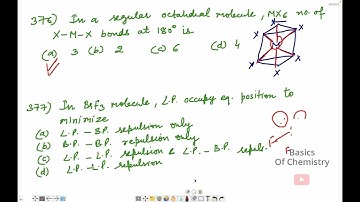 376) In a regular octahedral molecule, MX6 no of
X-M-X bonds at 180° is
(a) 3 (b) 2 (c) 6 (d) 4
X
X
X
X
X
X
377) In BrF3 molecule, L.P. occupy eq. position to
minimize
(a) L.P - B.P repulsion only
(b) B.P - B.P repulsion only
(c) L.P - L.P repulsion & L.P. - B.P repuls.
(d) L.P - L.P repulsion
F
F
Basics
Of Chemistry